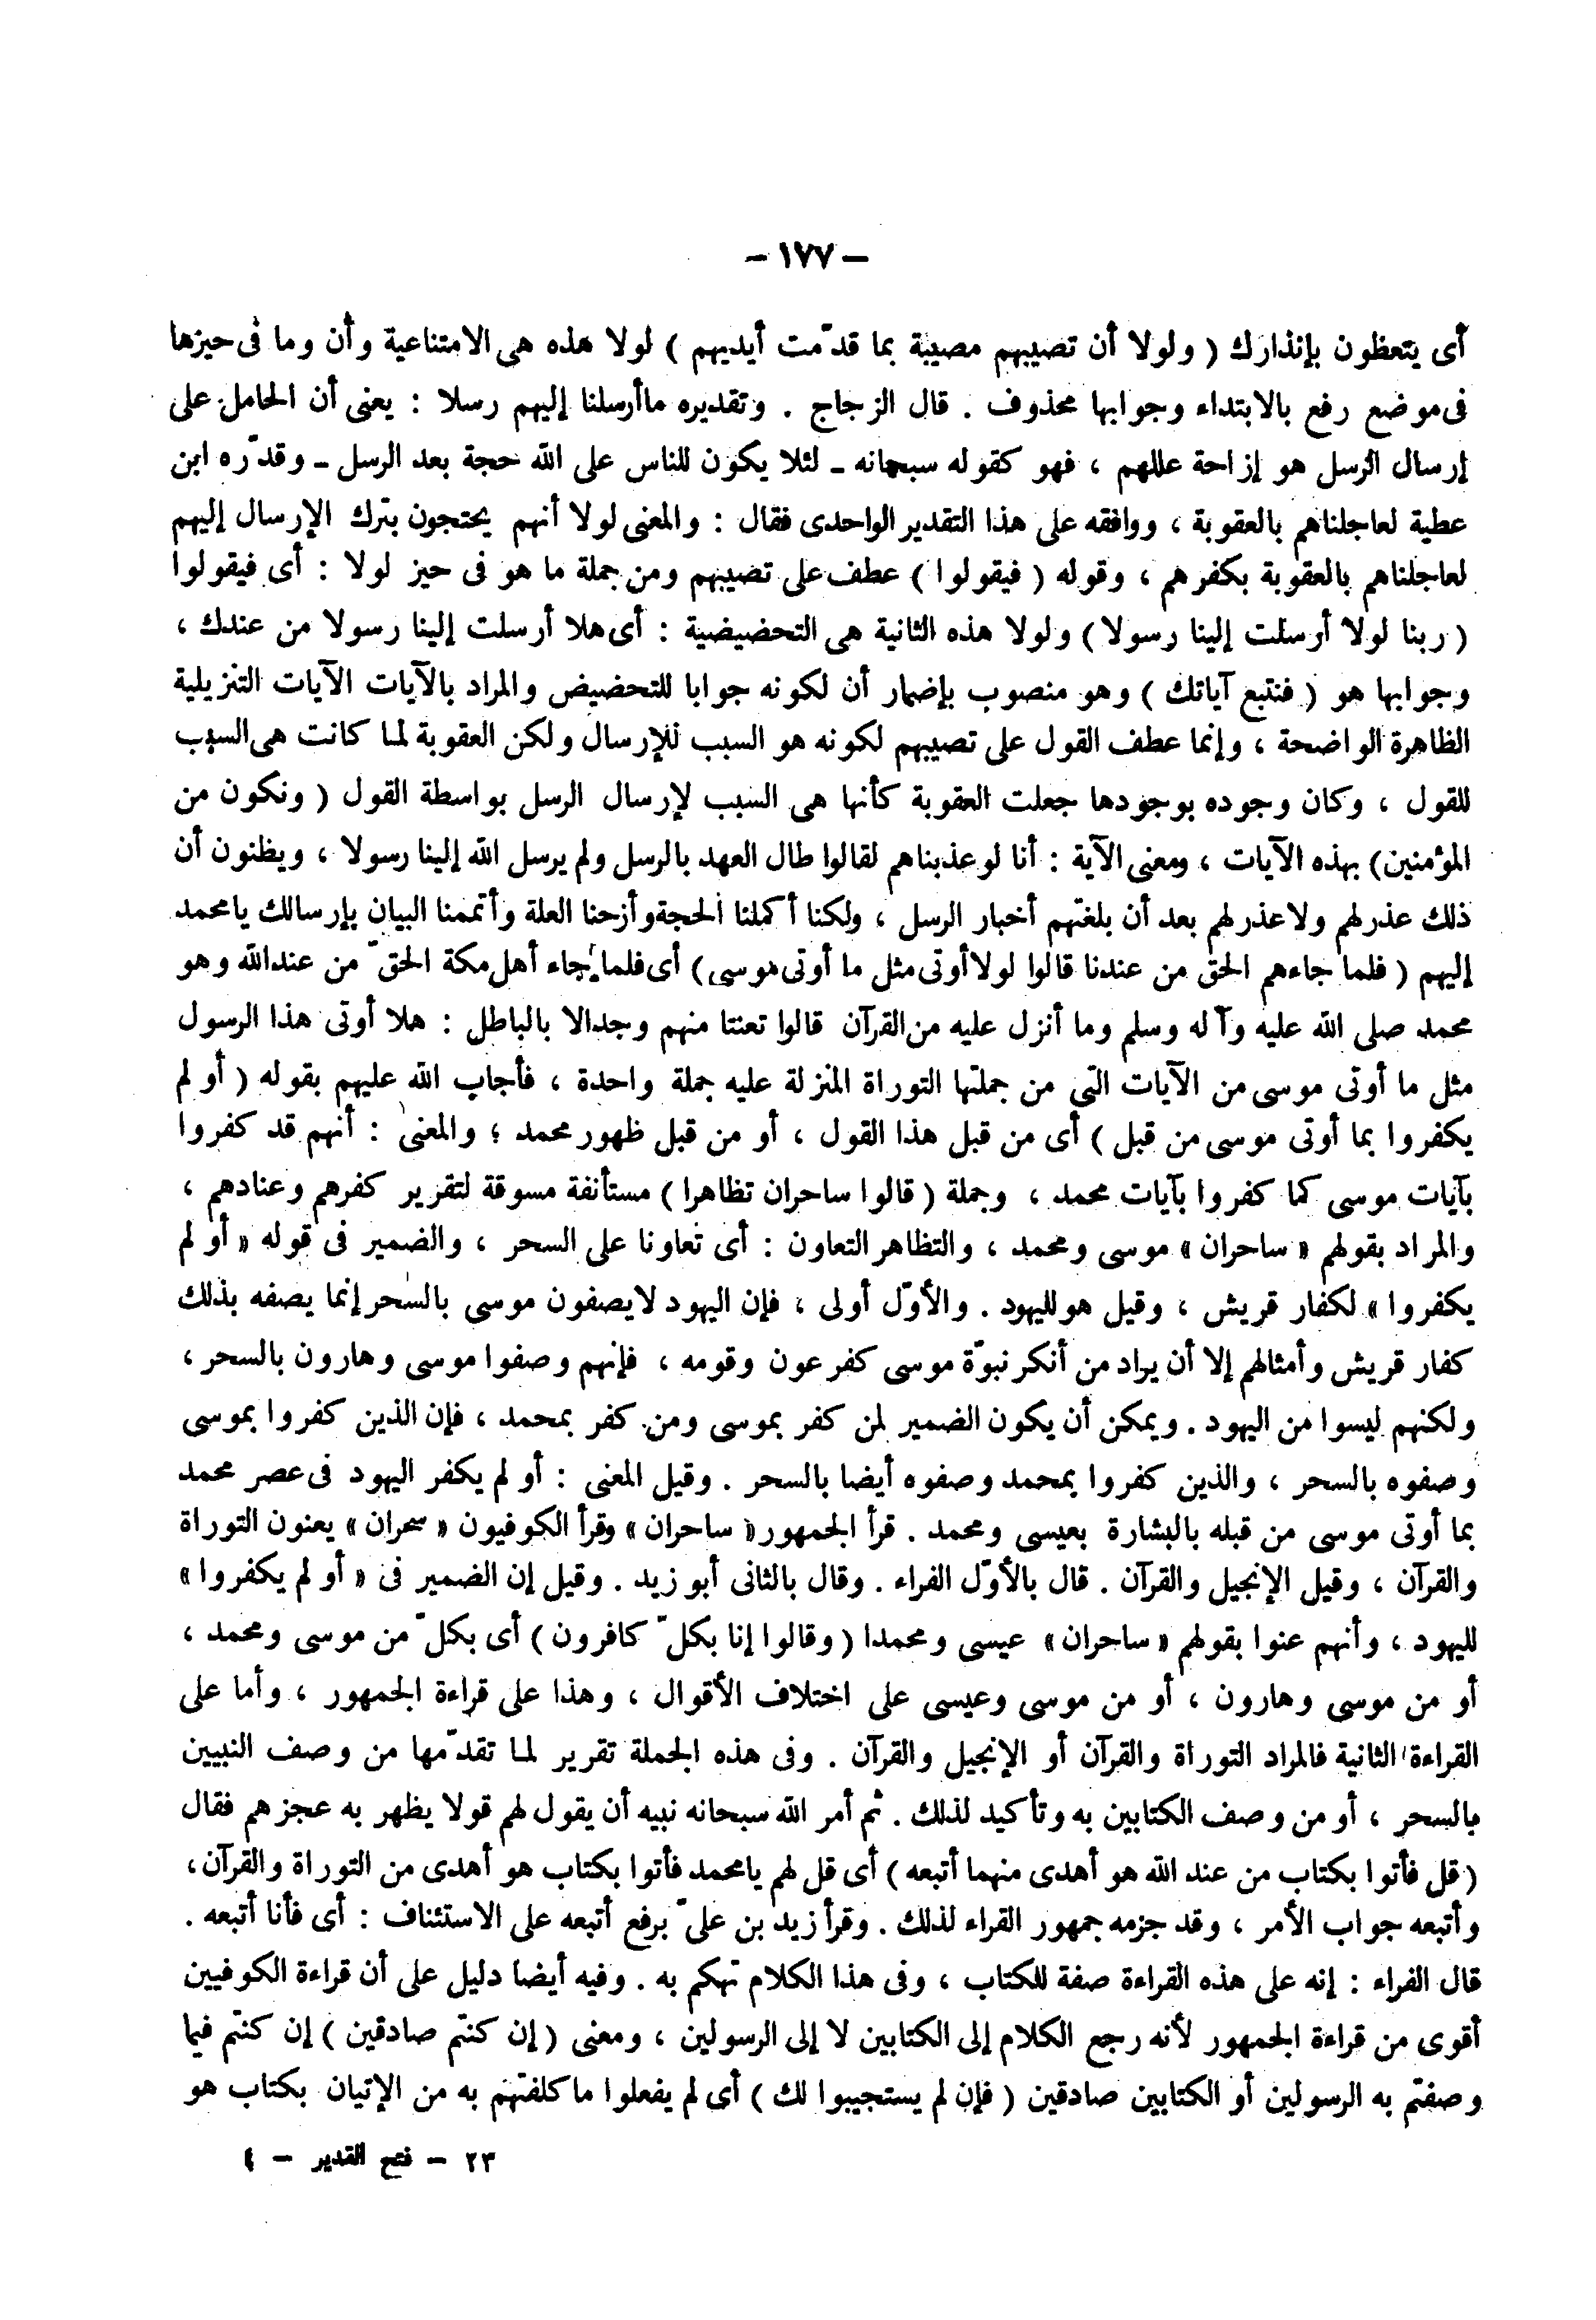 — ١٧٧ —
أى يتعظون بإنذارك ( ولولا أن تصيبهم مصيبة بما قدّمت أيديهم ) لولا هذه هى الامتناعية وأن وما فى حيزها
فى موضع رفع بالابتداء وجوابها محذوف . قال الزجاج . وتقديره ماأرسلنا إليهم رسلا : يعنى أن الحامل على
إرسال الرسل هو إزاحة عللهم ، فهو كقوله سبحانه ـ لئلا يكون للناس على الله حجة بعد الرسل ـ وقدّره ابن
عطية لعاجلناهم بالعقوبة ، ووافقه على هذا التقدير الواحدى فقال : والمعنى لولا أنهم يحتجون بترك الإرسال إليهم
لعاجلناهم بالعقوبة بكفرهم ، وقوله ( فيقولوا ) عطف على تصيبهم ومن جملة ما هو فى حيز لولا : أى فيقولوا
( ربنا لولا أرسلت إلينا رسولا ) ولولا هذه الثانية هى التحضيضية : أى هلا أرسلت إلينا رسولا من عندك ،
وجوابها هو ( فنتبع آياتك ) وهو منصوب بإضمار أن لكونه جوابا للتحضيض والمراد بالآيات الآيات التنزيلية
الظاهرة الواضحة ، وإنما عطف القول على تصيبهم لكونه هو السبب للإرسال ولكن العقوبة لما كانت هى السبب
للقول ، وكان وجوده بوجودها جعلت العقوبة كأنها هى السبب لإرسال الرسل بواسطة القول ( ونكون من
المؤمنين) بهذه الآيات ، ومعنى الآية : أنا لو عذبناهم لقالوا طال العهد بالرسل ولم يرسل الله إلينا رسولا ، ويظنون أن
ذلك عذر لهم ولا عذر لهم بعد أن بلغتهم أخبار الرسل ، ولكنا أكملنا الحجة وأزحنا العلة وأتممنا البيان بإرسالك يامحمد
إليهم ( فلما جاءهم الحق من عندنا قالوا لولا أوتى مثل ما أوتى موسى ) أى فلما جاء أهل مكة الحقّ من عند الله وهو
محمد صلى الله عليه وآله وسلم وما أنزل عليه من القرآن قالوا تعنتا منهم وجدالا بالباطل : هلا أوتى هذا الرسول
مثل ما أوتى موسى من الآيات التى من جملتها التوراة المنزلة عليه جملة واحدة ، فأجاب الله عليهم بقوله ( أو لم
يكفروا بما أوتى موسى من قبل ) أى من قبل هذا القول ، أو من قبل ظهور محمد ؛ والمعنى : أنهم قد كفروا
بآيات موسى كما كفروا بآيات محمد ، وجملة ( قالوا ساحران تظاهرا ) مستأنفة مسوقة لتقرير كفرهم وعنادهم ،
والمراد بقولهم « ساحران » موسى ومحمد ، والتظاهر التعاون : أى تعاونا على السحر ، والضمير فى قوله « أو لم
يكفروا » لكفار قريش ، وقيل هو لليهود . والأوّل أولى ، فإن اليهود لايصفون موسى بالسحر إنما يصفه بذلك
كفار قريش وأمثالهم إلا أن يراد من أنكر نبوّة موسى كفرعون وقومه ، فإنهم وصفوا موسى وهارون بالسحر ،
ولكنهم ليسوا من اليهود . ويمكن أن يكون الضمير لمن كفر بموسى ومن كفر بمحمد ، فإن الذين كفروا بموسى
وصفوه بالسحر ، والذين كفروا بمحمد وصفوه أيضا بالسحر . وقيل المعنى : أو لم يكفر اليهود فى عصر محمد
بما أوتى موسى من قبله بالبشارة بعيسى ومحمد . قرأ الجمهور « ساحران » وقرأ الكوفيون « سحران » يعنون التوراة
والقرآن ، وقيل الإنجيل والقرآن . قال بالأوّل الفراء . وقال بالثانى أبو زيد . وقيل إن الضمير فى « أو لم يكفروا »
لليهود ، وأنهم عنوا بقولهم « ساحران » عيسى ومحمدا ( وقالوا إنا بكلّ كافرون ) أى بكلّ من موسى ومحمد ،
أو من موسى وهارون ، أو من موسى وعيسى على اختلاف الأقوال ، وهذا على قراءة الجمهور ، وأما على
القراءة الثانية فالمراد التوراة والقرآن أو الإنجيل والقرآن . وفى هذه الجملة تقرير لما تقدّمها من وصف النبيين
بالسحر ، أو من وصف الكتابين به وتأكيد لذلك . ثم أمر الله سبحانه نبيه أن يقول لهم قولا يظهر به عجزهم فقال
( قل فأتوا بكتاب من عند الله هو أهدى منهما أتبعه ) أى قل لهم يامحمد فأتوا بكتاب هو أهدى من التوراة والقرآن ،
وأتبعه جواب الأمر ، وقد جزمه جمهور القراء لذلك . وقرأ زيد بن علىّ برفع أتبعه على الاستئناف : أى فأنا أتبعه .
قال الفراء : إنه على هذه القراءة صفة للكتاب ، وفى هذا الكلام تهكم به . وفيه أيضا دليل على أن قراءة الكوفيين
أقوى من قراءة الجمهور لأنه رجع الكلام إلى الكتابين لا إلى الرسولين ، ومعنى ( إن كنتم صادقين ) إن كنتم فيما
وصفتم به الرسولين أو الكتابين صادقين ( فإن لم يستجيبوا لك ) أى لم يفعلوا ما كلفتهم به من الإتيان بكتاب هو
٢٣ — فتح القدير — ٤